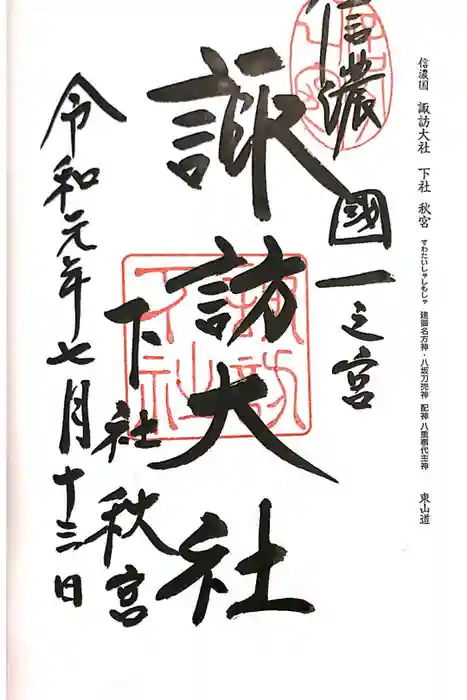 信濃国 諏訪大社 下社 秋宮 すわたいしゃしもしゃ 建御名方神・八坂刀売神 配神 八重事代主神 東山道
信濃國一之宮
諏訪大社
下社秋宮
令和元年七月十三日
諏訪
下社